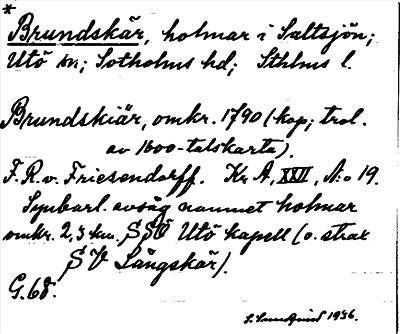 *
Brundskär, holmar i Saltsjön;
Utö sn; Sotholms hd; Sthlms l.
Brundskiär, omkr. 1790 (kop; trol.
av 1600-talskarta).
F. R. v. Friesendorff. Kr. A, XVII, N:o 19.
Synbarl. avsåg namnet holmar
omkr. 2,3 km. SSÖ Utö kapell (o. strax
SV Långskär).
G. 68.
1956